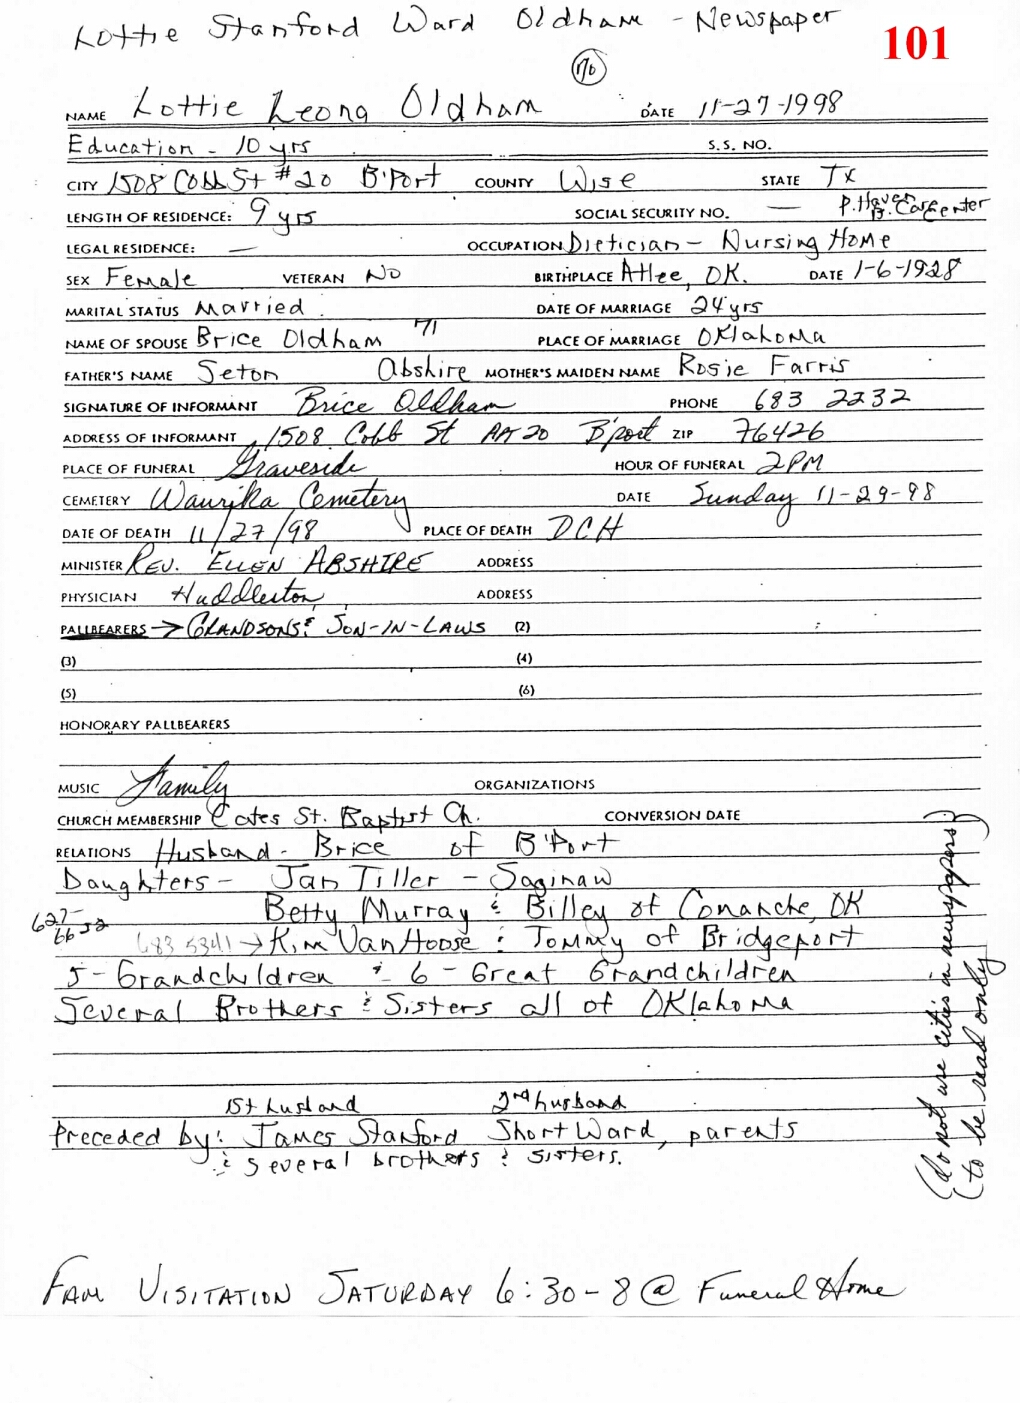 Lottie Stanford Ward Oldham - Newspaper
101
NAME Lottie Leona Oldham DATE 11-27-1998
Education - 10 yrs S.S. NO.
CITY 1508 Cobb St #20 B'Port COUNTY Wise STATE TX
LENGTH OF RESIDENCE: 9 yrs SOCIAL SECURITY NO. — P. Haven
B. Care Center
LEGAL RESIDENCE: — OCCUPATION Dietician - Nursing Home
SEX Female VETERAN No BIRTHPLACE Atlee, OK. DATE 1-6-1928
MARITAL STATUS Married DATE OF MARRIAGE 24 yrs
NAME OF SPOUSE Brice Oldham 71 PLACE OF MARRIAGE Oklahoma
FATHER'S NAME Seton Abshire MOTHER'S MAIDEN NAME Rosie Farris
SIGNATURE OF INFORMANT Brice Oldham PHONE 683 2232
ADDRESS OF INFORMANT 1508 Cobb St Apt 20 B'port ZIP 76426
PLACE OF FUNERAL Graveside HOUR OF FUNERAL 2PM
CEMETERY Waurika Cemetery DATE Sunday 11-29-98
DATE OF DEATH 11/27/98 PLACE OF DEATH DCH
MINISTER REV. ELLEN ABSHIRE ADDRESS
PHYSICIAN Huddleston ADDRESS
PALLBEARERS → GRANDSONS & SON-IN-LAWS (2)
(3) (4)
(5) (6)
HONORARY PALLBEARERS
MUSIC Family ORGANIZATIONS
CHURCH MEMBERSHIP Cates St. Baptist Ch. CONVERSION DATE
RELATIONS Husband - Brice of B'Port
Daughters - Jan Tiller - Saginaw
Betty Murray & Billey of Comanche, OK
627-
6652
683 5341 → Kim VanHoose & Tommy of Bridgeport
5 - Grandchildren & 6 - Great Grandchildren
Several Brothers & Sisters all of Oklahoma
1st husband 2nd husband
Preceded by: James Stanford Short Ward, parents
& several brothers & sisters.
(do not use cities in newspapers)
(to be read only)
FAM VISITATION SATURDAY 6:30-8 @ Funeral Home